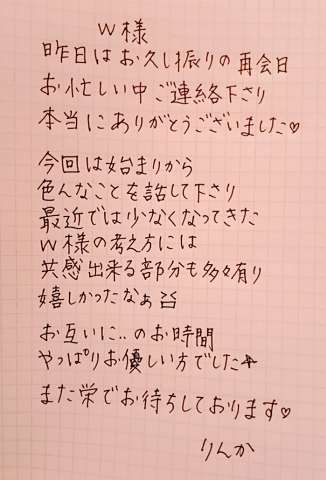 W様
昨日はお久し振りの再会日
お忙しい中ご連絡下さり
本当にありがとうございました♡
今回は始まりから
色んなことを話して下さり
最近では少なくなってきた
W様の考え方には
共感出来る部分も多々有り
嬉しかったなぁ
お互いに‥のお時間
やっぱりお優しい方でした☆
また栄でお待ちしております♡
りんか